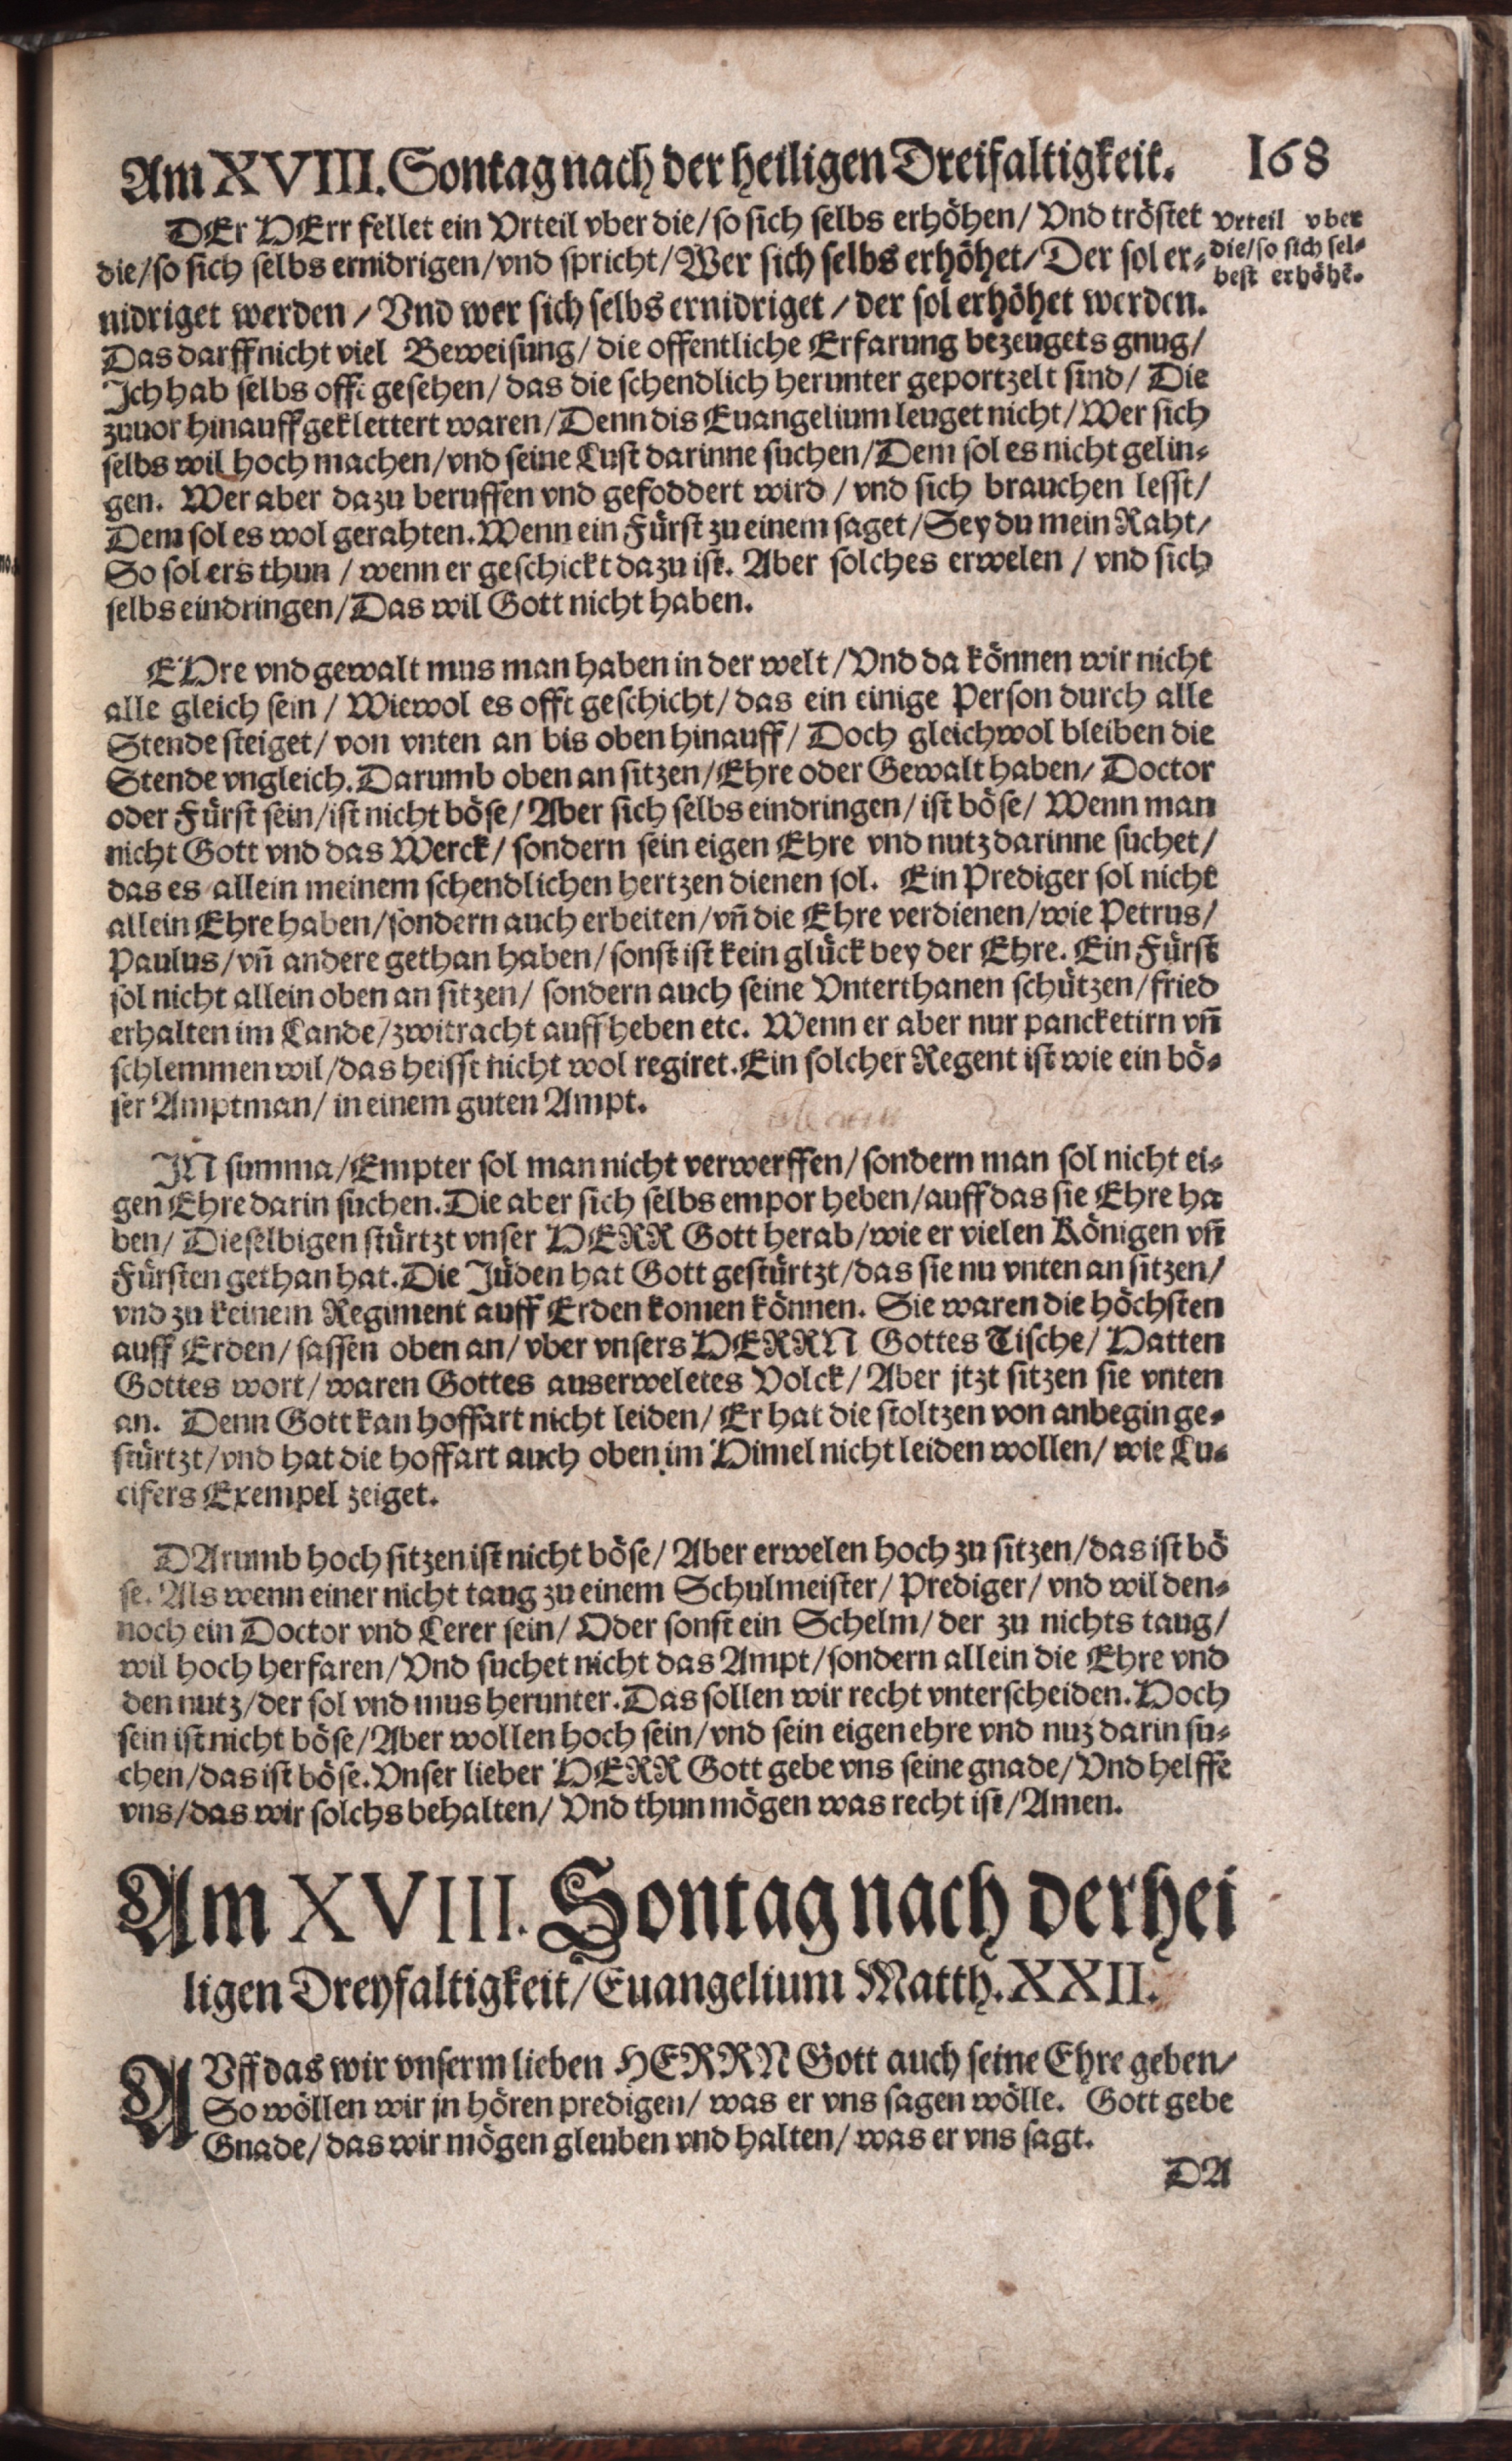 Am XVIII. Sontag nach der heiligen Dreifaltigkeit. 168
DEr HErr fellet ein Vrteil vber die/ so sich selbs erhöhen/ Vnd tröstet
die/ so sich selbs ernidrigen/ vnd spricht/ Wer sich selbs erhöhet/ Der sol er-
nidriget werden/ Vnd wer sich selbs ernidriget/ der sol erhöhet werden.
Vrteil vber
die/ so sich sel-
best erhöhẽ.
Das darff nicht viel Beweisung/ die offentliche Erfarung bezeugets gnug/
Ich hab selbs offt gesehen/ das die schendlich herunter geportzelt sind/ Die
zuuor hinauff geklettert waren/ Denn dis Euangelium leuget nicht/ Wer sich
selbs wil hoch machen/ vnd seine Lust darinne suchen/ Dem sol es nicht gelin-
gen. Wer aber dazu beruffen vnd gefoddert wird/ vnd sich brauchen lesst/
Dem sol es wol gerahten. Wenn ein Fürst zu einem saget/ Sey du mein Raht/
So sol ers thun/ wenn er geschickt dazu ist. Aber solches erwelen/ vnd sich
selbs eindringen/ Das wil Gott nicht haben.
EHre vnd gewalt mus man haben in der welt/ Vnd da können wir nicht
alle gleich sein/ Wiewol es offt geschicht/ das ein einige Person durch alle
Stende steiget/ von vnten an bis oben hinauff/ Doch gleichwol bleiben die
Stende vngleich. Darumb oben an sitzen/ Ehre oder Gewalt haben/ Doctor
oder Fürst sein/ ist nicht böse/ Aber sich selbs eindringen/ ist böse/ Wenn man
nicht Gott vnd das Werck/ sondern sein eigen Ehre vnd nutz darinne suchet/
das es allein meinem schendlichen hertzen dienen sol. Ein Prediger sol nicht
allein Ehre haben/ sondern auch erbeiten/ vñ die Ehre verdienen/ wie Petrus/
Paulus/ vñ andere gethan haben/ sonst ist kein glück bey der Ehre. Ein Fürst
sol nicht allein oben an sitzen/ sondern auch seine Vnterthanen schützen/ fried
erhalten im Lande/ zwitracht auffheben etc. Wenn er aber nur pancketirn vñ
schlemmen wil/ das heisst nicht wol regiret. Ein solcher Regent ist wie ein bö-
ser Amptman/ in einem guten Ampt.
IN summa/ Empter sol man nicht verwerffen/ sondern man sol nicht ei-
gen Ehre darin suchen. Die aber sich selbs empor heben/ auff das sie Ehre ha
ben/ Dieselbigen stürtzt vnser HERR Gott herab/ wie er vielen Königen vñ
Fürsten gethan hat. Die Jüden hat Gott gestürtzt/ das sie nu vnten an sitzen/
vnd zu keinem Regiment auff Erden komen können. Sie waren die höchsten
auff Erden/ sassen oben an/ vber vnsers HERRN Gottes Tische/ Hatten
Gottes wort/ waren Gottes auserweletes Volck/ Aber jtzt sitzen sie vnten
an. Denn Gott kan hoffart nicht leiden/ Er hat die stoltzen von anbegin ge-
stürtzt/ vnd hat die hoffart auch oben im Himel nicht leiden wollen/ wie Lu-
cifers Exempel zeiget.
DArumb hoch sitzen ist nicht böse/ Aber erwelen hoch zu sitzen/ das ist bö
se. Als wenn einer nicht taug zu einem Schulmeister/ Prediger/ vnd wil den-
noch ein Doctor vnd Lerer sein/ Oder sonst ein Schelm/ der zu nichts taug/
wil hoch herfaren/ Vnd suchet nicht das Ampt/ sondern allein die Ehre vnd
den nutz/ der sol vnd mus herunter. Das sollen wir recht vnterscheiden. Hoch
sein ist nicht böse/ Aber wollen hoch sein/ vnd sein eigen ehre vnd nuz darin su-
chen/ das ist böse. Vnser lieber HERR Gott gebe vns seine gnade/ Vnd helffe
vns/ das wir solchs behalten/ Vnd thun mögen was recht ist/ Amen.
Am XVIII. Sontag nach der hei
ligen Dreyfaltigkeit/ Euangelium Matth. XXII.
AVff das wir vnserm lieben HERRN Gott auch seine Ehre geben/
So wöllen wir jn hören predigen/ was er vns sagen wölle. Gott gebe
Gnade/ das wir mögen gleuben vnd halten/ was er vns sagt.
DA